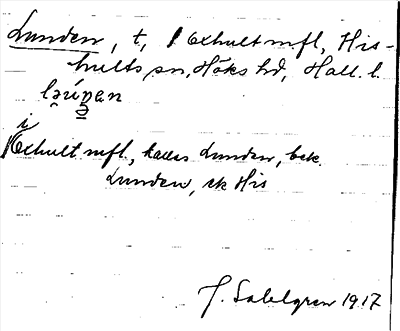 Lunden, t, / Exhult mfl, His-
hults sn, Höks hd, Hall. l.
i Exhult mfl, kallas Lunden, bek.
Lunden, ek His
J. Sahlgren 1917